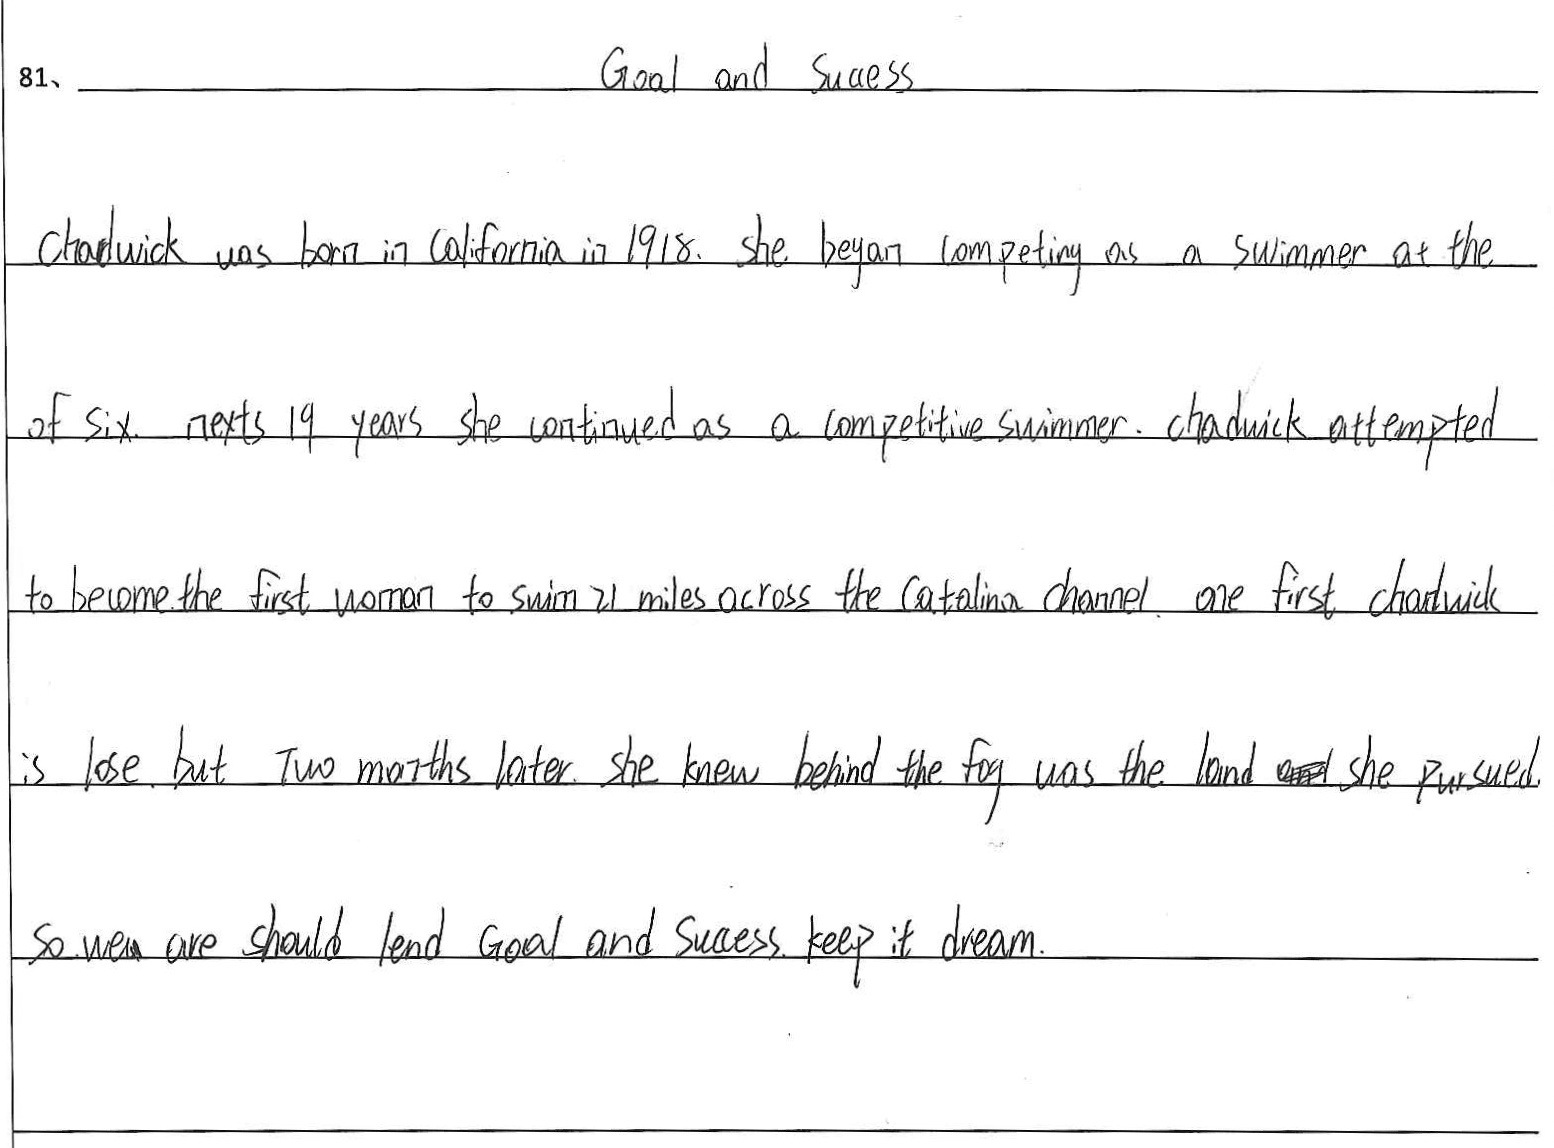 81、 Goal and Success
Chadwick was born in California in 1918. she began competing as a swimmer at the
of six. nexts 19 years she continued as a competitive swimmer. chadwick attempted
to become the first woman to swim 21 miles across the Catalina channel. one first chadwick
is lose but Two months later. she knew behind the fog was the land she pursued.
So are should lend Goal and Success. keep it dream.